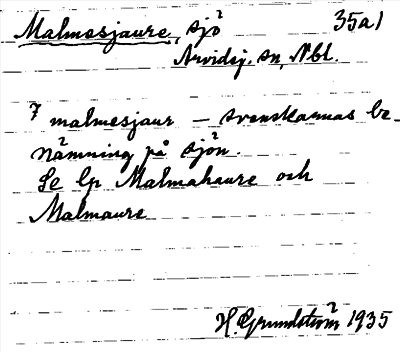 Malmesjaure, sjö 35a1
Arvidsj. sn, Nbl.
7 malmesjaur — svenskarnas be-
nämning på sjön.
Se lp Malmahaure och
Malmaure
H. Grundström 1935